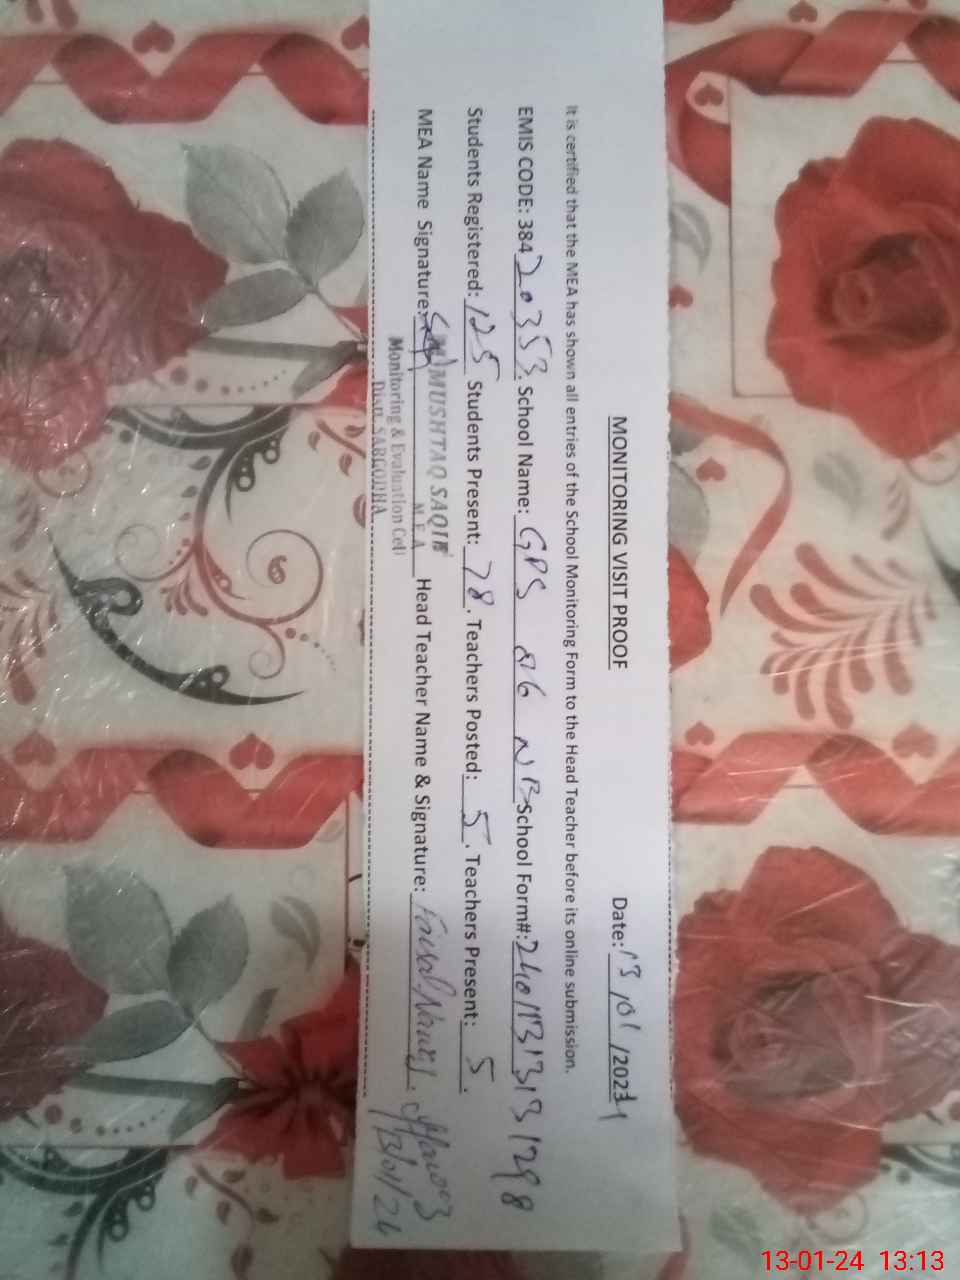 MONITORING VISIT PROOF Date: 13/01/2024
It is certified that the MEA has shown all entries of the School Monitoring Form to the Head Teacher before its online submission.
EMIS CODE: 38420353. School Name: GPS 86 NB School Form#: 2401131313 1298
Students Registered: 125 Students Present: 78. Teachers Posted: 5. Teachers Present: 5.
MEA Name Signature: MUSHTAQ SAQIB Head Teacher Name & Signature: Faisal Nawaz.
M.E.A
Monitoring & Evaluation Cell
Distt. SARGODHA
13/01/24
13-01-24 13:13